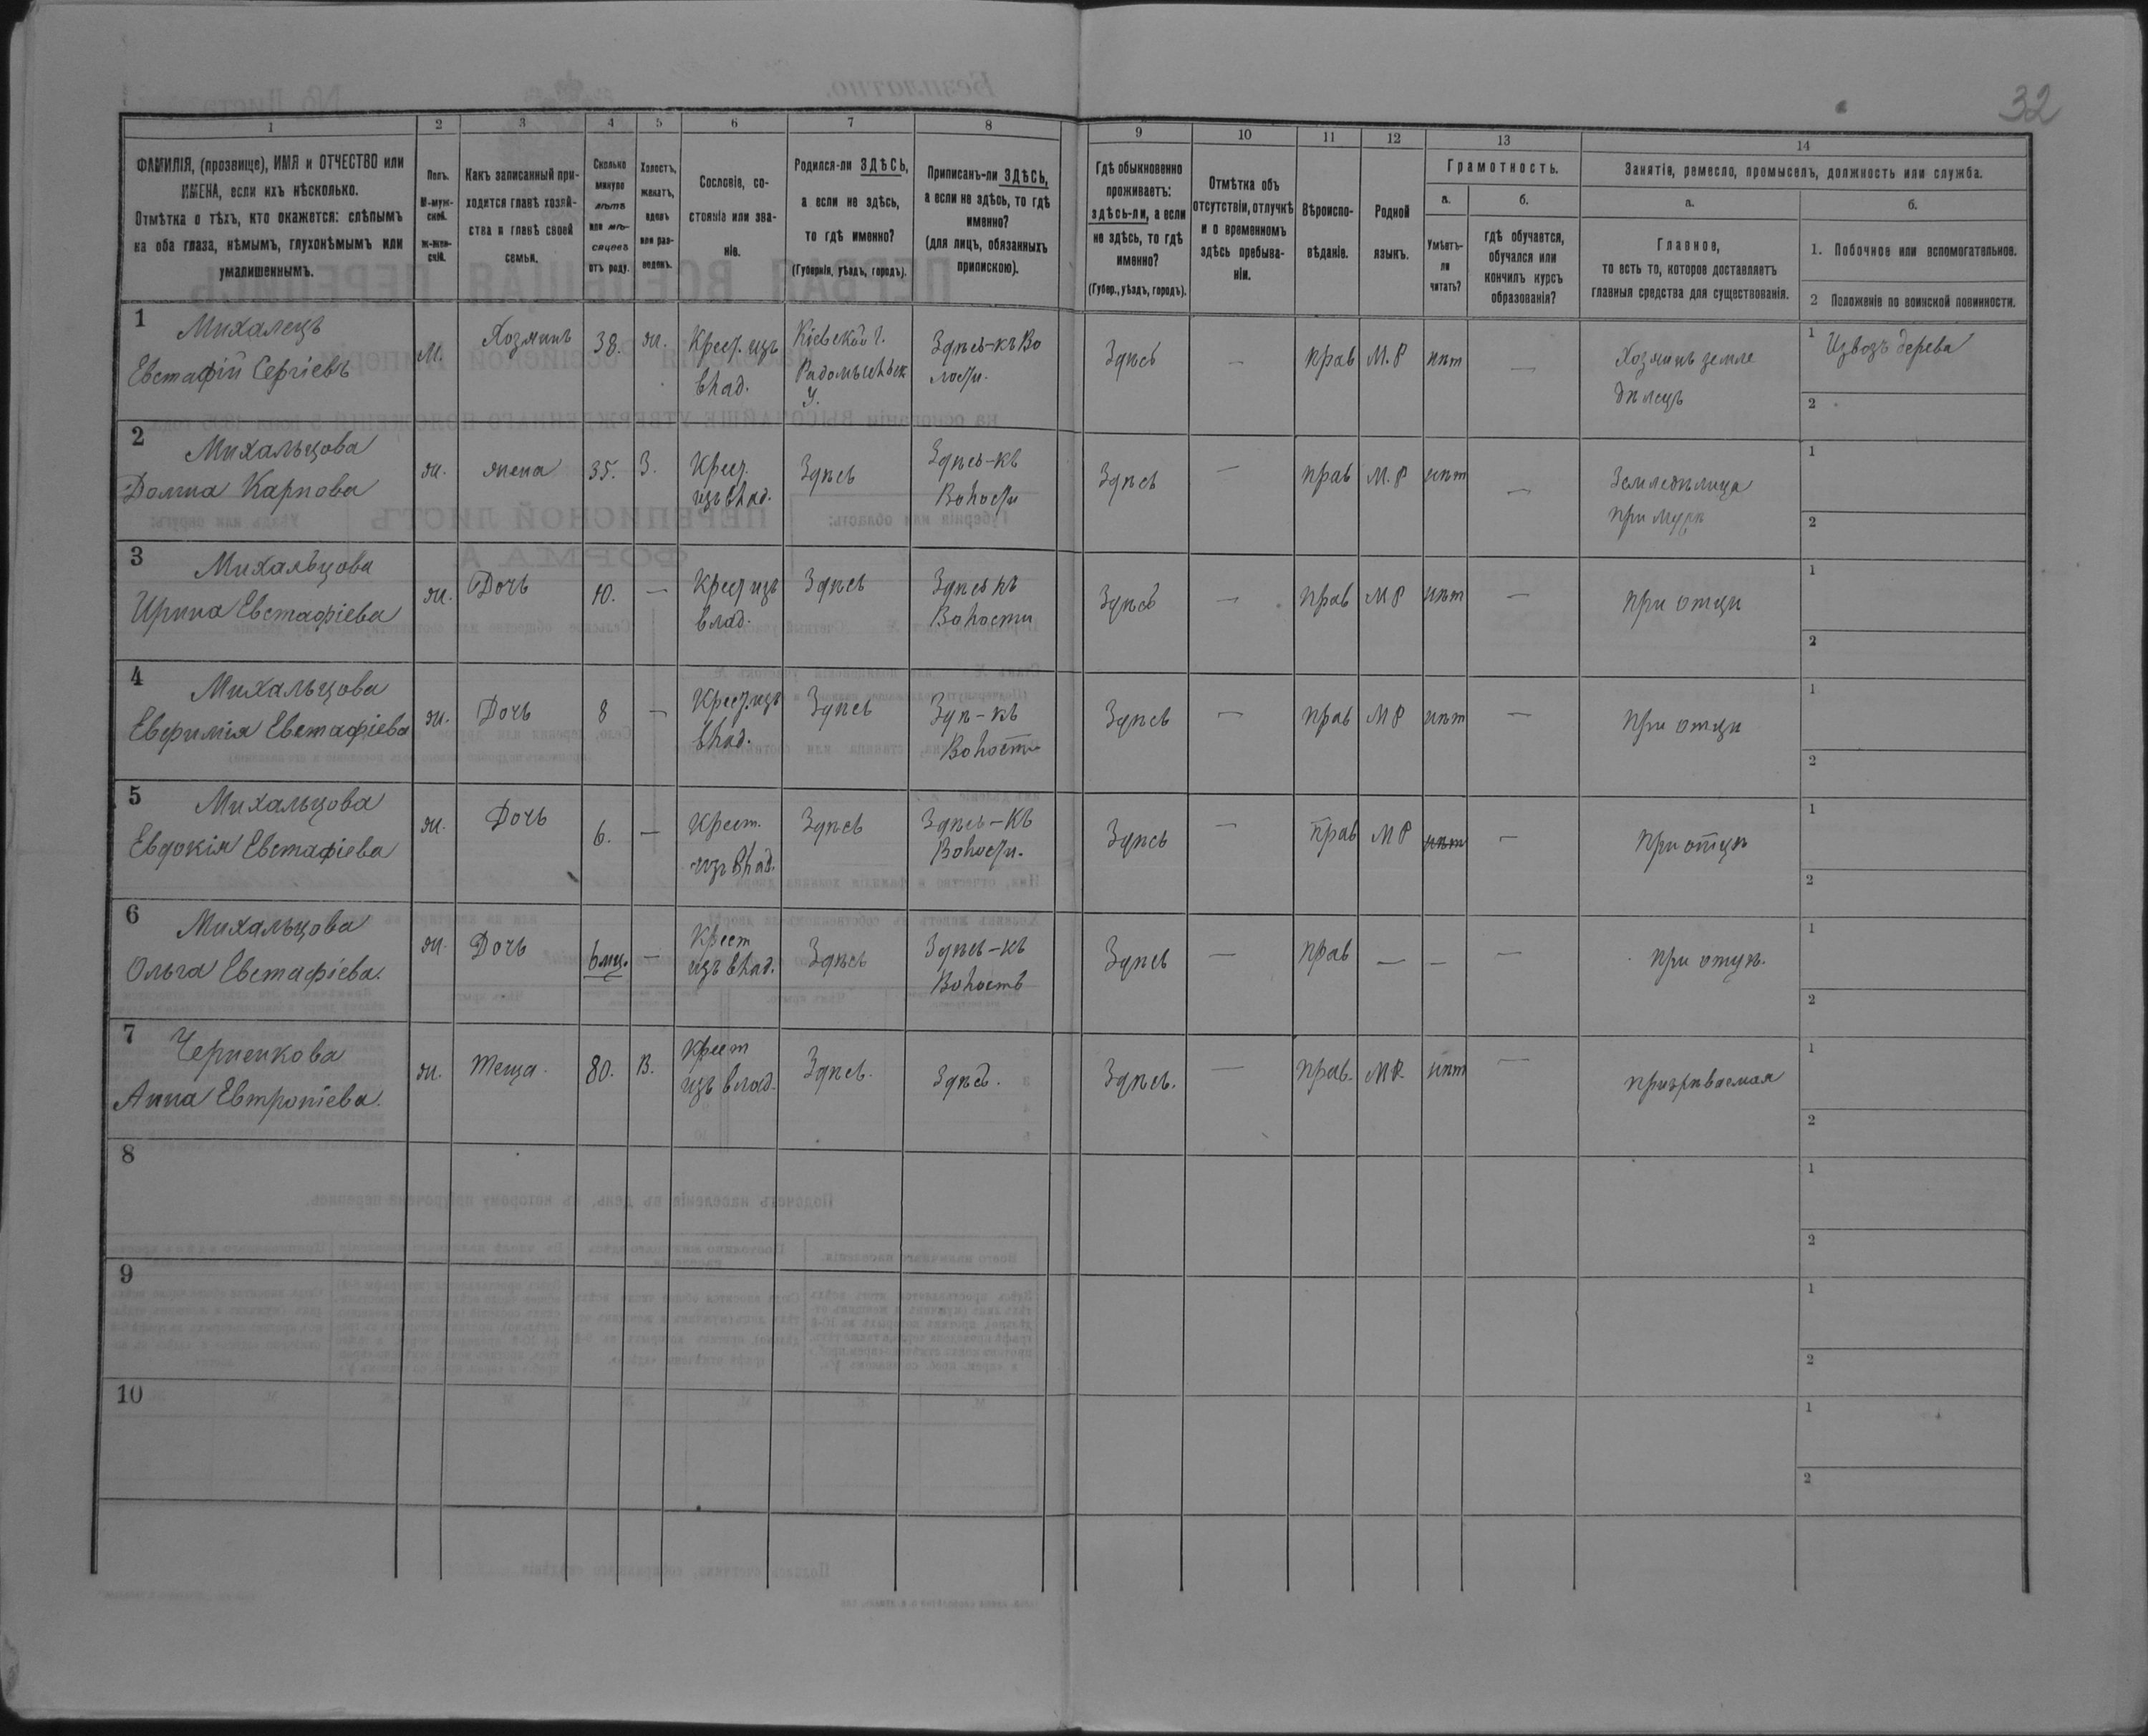 32
1 2 3 4 5 6 7 8 9 10 11 12 13 14
ФАМИЛІЯ, (прозвище), ИМЯ и ОТЧЕСТВО или
ИМЕНА, если ихъ нѣсколько.
Отмѣтка о тѣхъ, кто окажется: слѣпымъ
на оба глаза, нѣмымъ, глухонѣмымъ или
умалишеннымъ.
Полъ.
М-муж-
ской.
Ж-жен-
скій.
Какъ записанный при-
ходится главѣ хозяй-
ства и главѣ своей
семьи.
Сколько
минуло
лѣтъ
или мѣ-
сяцевъ
отъ роду.
Холостъ,
женатъ,
вдовъ
или раз-
веденъ.
Сословіе, со-
стояніе или зва-
ніе.
Родился-ли ЗДѢСЬ,
а если не здѣсь,
то гдѣ именно?
(Губернія, уѣздъ, городъ).
Приписанъ-ли ЗДѢСЬ,
а если не здѣсь, то гдѣ
именно?
(для лицъ, обязанныхъ
припискою).
Гдѣ обыкновенно
проживаетъ:
здѣсь-ли, а если
не здѣсь, то гдѣ
именно?
(Губер., уѣздъ, городъ).
Отмѣтка объ
отсутствіи, отлучкѣ
и о временномъ
здѣсь пребыва-
ніи.
Вѣроиспо-
вѣданіе.
Родной
языкъ.
Грамотность.
а.
Умѣетъ-
ли
читать?
б.
гдѣ обучается,
обучался или
кончилъ курсъ
образованія?
Занятіе, ремесло, промыселъ, должность или служба.
а.
Главное,
то есть то, которое доставляетъ
главныя средства для существованія.
б.
1. Побочное или вспомогательное.
2 Положеніе по воинской повинности.
1
Михалецъ
Евстафій Сергіевъ
М.
Хозяинъ
38.
ж.
Крест. изъ
влад.
Кіевской г.
Радомысльск
у.
Здѣсь-къ Во
лости.
Здѣсь
—
прав
М.Р
нѣт
—
Хозяинъ земле
дѣлецъ
1 Извозъ дерева
2
2
Михальцова
Домна Карпова
ж.
жена
35.
З.
Крест.
изъ влад.
Здѣсь
Здѣсь-къ
Волости
Здѣсь
—
прав
М.Р
нѣт
—
Земледѣлица
при мужѣ
1
2
3
Михальцова
Ирина Евстафіева
ж.
Дочь
10.
—
Крест изъ
влад.
Здѣсь
Здѣсь къ
Волости
Здѣсь
—
прав
МР
нѣт
—
при отцѣ
1
2
4
Михальцова
Евфимія Евстафіева
ж.
Дочь
8
—
Крест. изъ
влад.
Здѣсь
Здѣ-къ
Волости
Здѣсь
—
прав
МР
нѣт
—
при отцѣ
1
2
5
Михальцова
Евдокія Евстафіева
ж.
Дочь
6.
—
Крест.
изъ влад.
Здѣсь
Здѣсь-къ
Волости.
Здѣсь
—
прав
МР
нѣт
—
при отцѣ
1
2
6
Михальцова
Ольга Евстафіева.
ж.
Дочь
6 мц.
—
Крест
изъ влад.
Здѣсь
Здѣсь-къ
Волость
Здѣсь
—
прав
—
—
—
при отцѣ.
1
2
7
Черненкова
Анна Евтропіева.
ж.
теща.
80.
В.
Крест
изъ влад.
Здѣсь.
Здѣсь.
Здѣсь.
—
прав.
МР.
нѣт
—
призрѣваемая
1
2
8
1
2
9
1
2
10
1
2